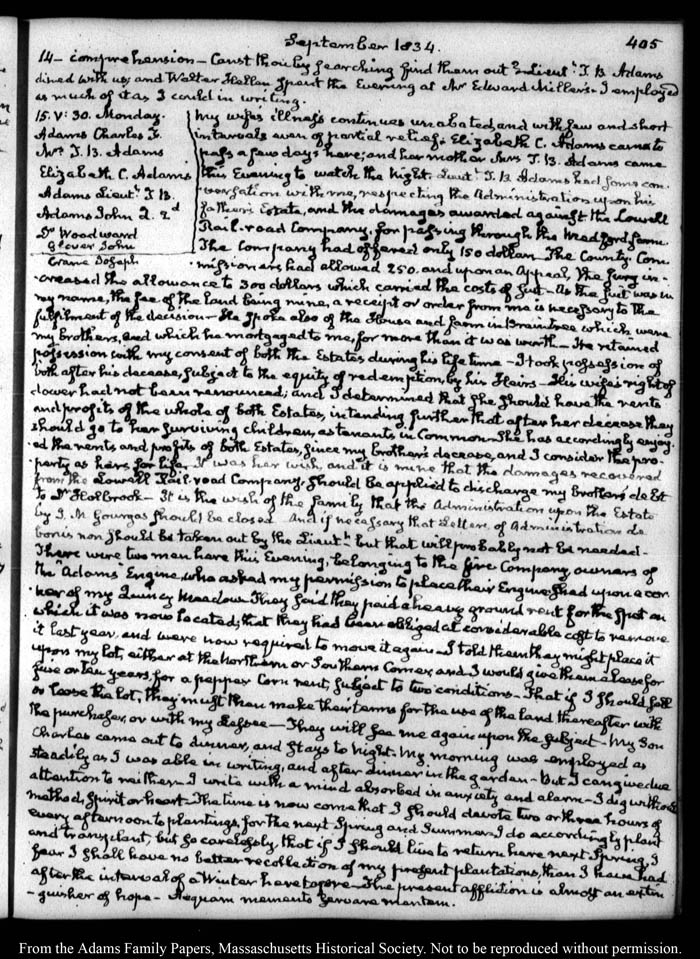 September 1834.
405
14 - comprehension - Canst thou by searching find them out? Lieut.t T. B. Adams
dined with us; and Walter Hellen spent the Evening at Mr Edward Miller's - I employed
as much of it as I could in writing.
15. V: 30. Monday.
Adams Charles F.
Mrs T. B. Adams
Elizabeth C. Adams
Adams Lieut.t T. B.
Adams John Q. 2.d
Dr Woodward
Glover John
Crane Joseph
My wife's illness continues unabated, and with few and short
intervals even of partial relief. Elizabeth C. Adams came to
pass a few days here; and her mother Mrs T. B. Adams came
this Evening to watch the night. Lieut.t T. B. Adams had some con-
versation with me, respecting the Administration upon his
father's Estate, and the damages awarded against the Lowell
Rail-road Company, for passing through the Medford farm.
The Company had offered only 150 dollars. The County Com-
missioners had allowed 250. and upon an Appeal, the Jury in-
creased the allowance to 300 dollars which carried the costs of suit - As the suit was in
my name, the fee of the land being mine, a receipt or order from me is necessary to the
fulfilment of the decision - He spoke also of the House and farm in Braintree which were
my brother's, and which he mortgaged to me, for more than it was worth - He retained
possession with my consent of both the Estates during his life time - I took possession of
both after his decease, subject to the equity of redemption, by his Heirs - His wife's right of
dower had not been renounced; and I determined that she should have the rents
and profits of the whole of both Estates, intending further that after her decease they
should go to her surviving children, as tenants in Common. She has accordingly enjoy-
ed the rents and profits of both Estates, since my brother's decease, and I consider the pro-
perty as hers for life. It was her wish, and it is mine that the damages recovered
from the Lowell Rail-road Company, should be applied to discharge my Brother's debt
to Dr Holbrook - It is the wish of the family that the Administration upon the Estate
by J. M. Gourgas should be closed. And if necessary that Letters of Administration de
bonis non should be taken out by the Lieut.t but that will probably not be needed -
There were two men here this Evening, belonging to the fire Company, owners of
the "Adams" Engine, who asked my permission to place their Engine shed upon a cor-
ner of my Quincy Meadow. They said they paid a heavy ground rent for the spot on
which it was now located; that they had been obliged at considerable cost to remove
it last year, and were now required to move it again - I told them they might place it
upon my lot, either at the Northern or Southern Corner, and I would give them a lease for
five or ten years, for a pepper Corn rent, subject to two conditions - That if I should sell
or lease the lot, they must then make their terms for the use of the land thereafter with
the purchaser, or with my Lessee - They will see me again upon the subject - My Son
Charles came out to dinner, and stays to night. My morning was employed as
steadily as I was able in writing, and after dinner in the garden - But I can give due
attention to neither - I write with a mind absorbed in anxiety and alarm - I dig without
method, spirit or heart - The time is now come that I should devote two or three hours of
every afternoon to plantings, for the next Spring and Summer - I do accordingly plant
and transplant; but so carelessly, that if I should live to return here next Spring, I
fear I shall have no better recollection of my present plantations, than I have had
after the interval of a Winter heretofore - The present affliction is almost an extin-
guisher of hope - Aequam memento servare mentem.
From the Adams Family Papers, Massachusetts Historical Society. Not to be reproduced without permission.